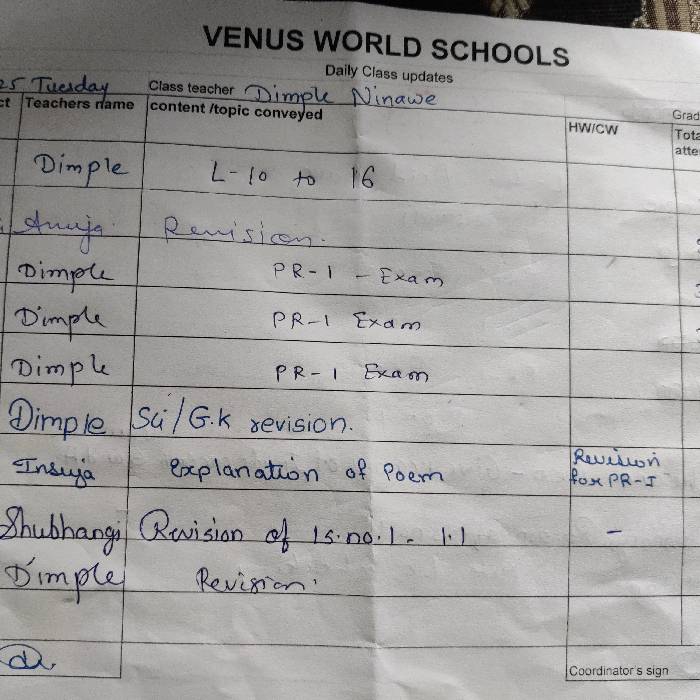 VENUS WORLD SCHOOLS
Daily Class updates
25 Tuesday Class teacher Dimple Ninawe
ct Teachers name content /topic conveyed HW/CW Grad
Tota
atte
Dimple L-10 to 16
Anuja Revision.
Dimple PR-1 - Exam
Dimple PR-1 Exam
Dimple PR-1 Exam
Dimple Sci/G.K revision.
Explanation of Poem Revision
for PR-I
Shubhangi Revision of 1.1 -
Dimple Revision.
Coordinator's sign